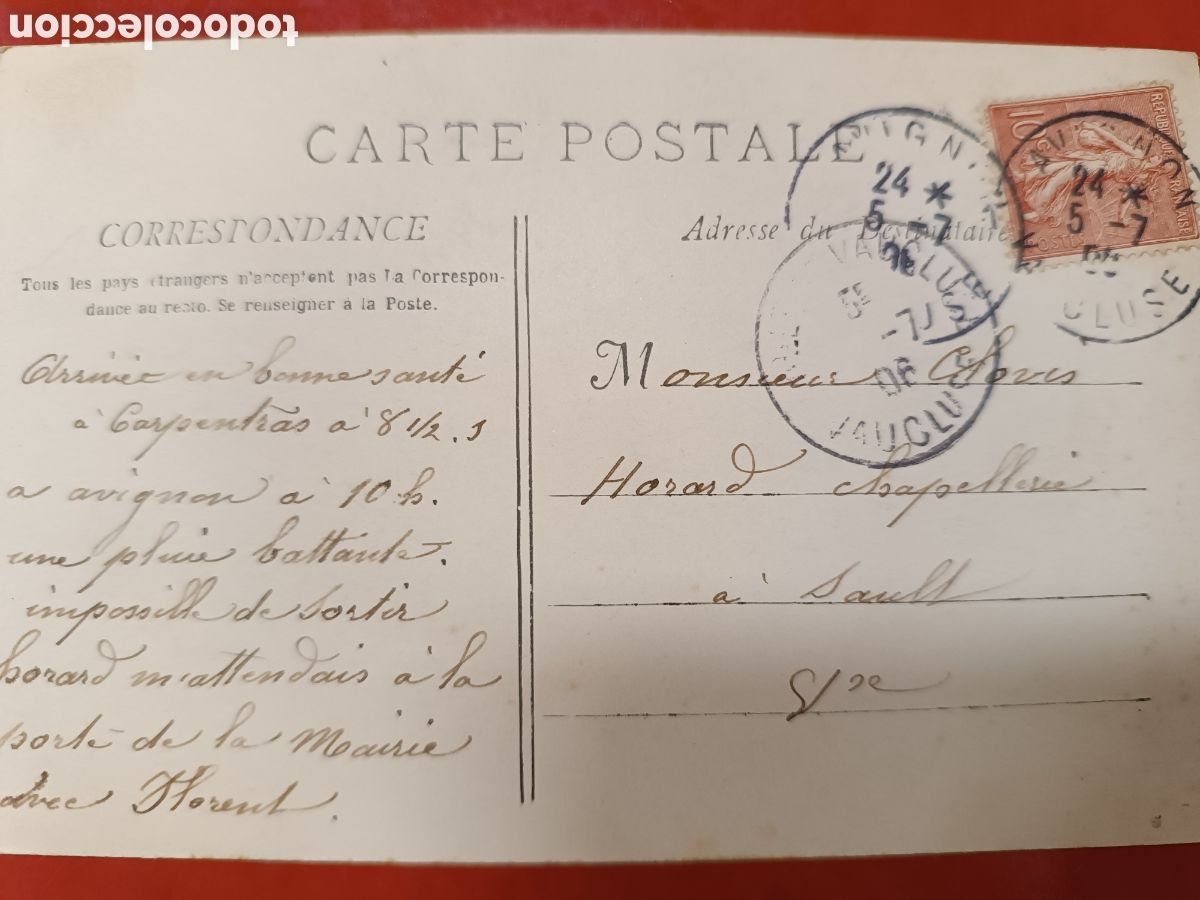 todocoleccion
CARTE POSTALE
CORRESPONDANCE
Tous les pays étrangers n'acceptent pas la Correspon-
dance au recto. Se renseigner à la Poste.
Arrivée en bonne santé
à Carpentras à 8 1/2.
a avignon à 10 h.
une pluie battante.
impossille de sortir
horard m'attendais à la
porte de la Mairie
avec Florent.
Adresse du Destinataire
Monsieur Clovis
Horard Chapellerie
à Sault
10c
REPUBLIQUE FRANÇAISE
POSTES
AVIGNON
24 *
5 -7
06
VAUCLUSE
AVIGNON
24 *
5 -7
VAUCLUSE
5 -7
06
VAUCLUSE